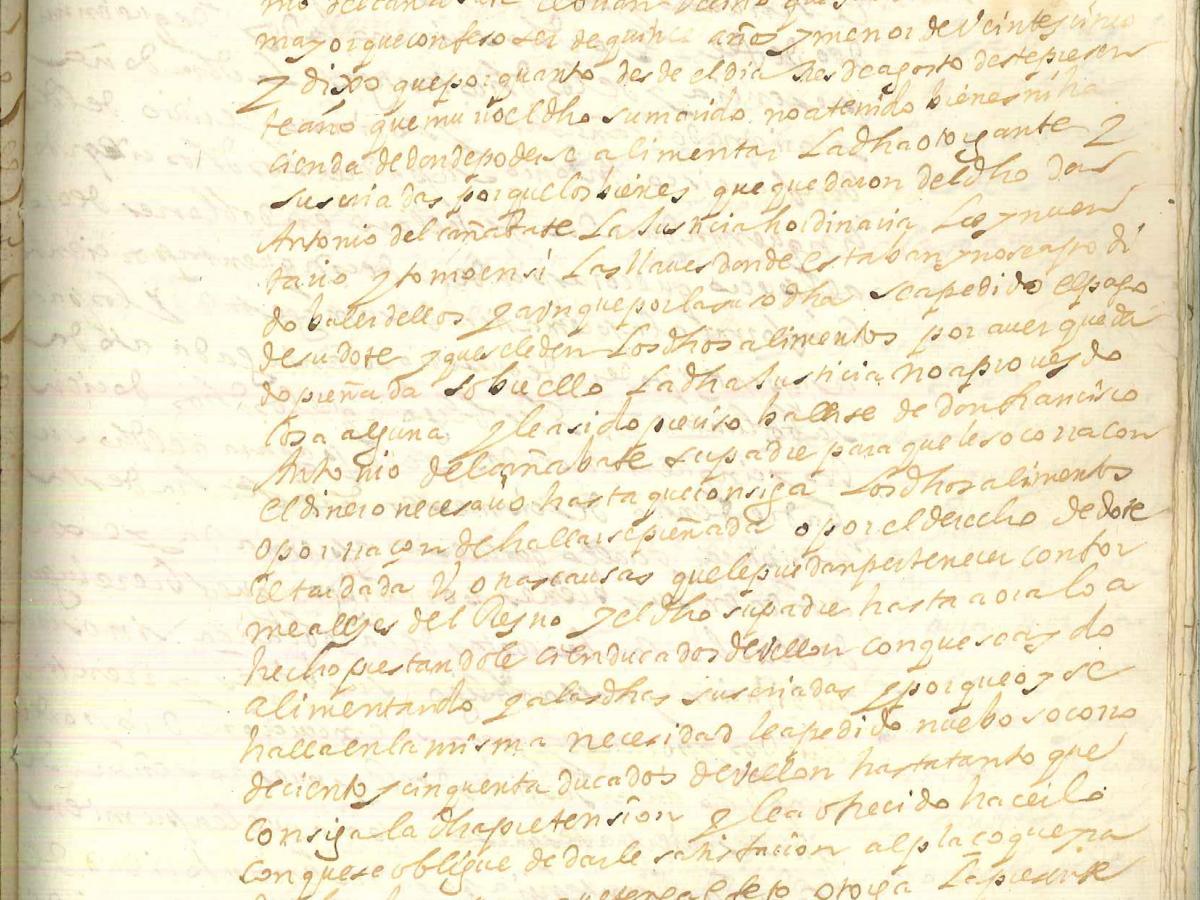 mayor que confeso ser de quince años y menor de Veinte y cinco
Y dixo que por quanto desde el dia tres de agosto deste presen
te año que murio el dho su marido no a tenido bienes ni ha
cienda de donde poderse alimentar La dha otorgante Y
sus criadas porque los bienes que quedaron del dho don
Antonio del cañabate La Justicia hordinaria Los ynuen
tario y tomo en si Las llaves donde estaban y no se a podi
do baler dellos Y aunque por la susodha se a pedido el pago
de su dote y que se le den Los dhos alimentos por auer queda
do preñada sobre ello La dha Justicia no a proueydo
Cosa alguna y le a sido preciso balerse de don francisco
Antonio del cañabate su padre para que le socorra con
El dinero necesario hasta que consiga Los dhos alimentos
o por raçon de hallarse preñada o por el derecho de dote
Retardada V otras causas que le puedan pertenecer confor
me a leyes del Reyno Y el dho su padre hasta aora lo a
hecho prestandole cien ducados de vellon con que se a ydo
alimentando Y a las dhas sus criadas Y porque oy se
halla en la misma necesidad le a pedido nuebo socorro
de ciento y cinquenta ducados de vellon hasta tanto que
Consiga la dha pretension Y le a ofrecido hacerlo
Con que se obligue de darle satisfacion al plaço que
tenga efeto otorga La presente